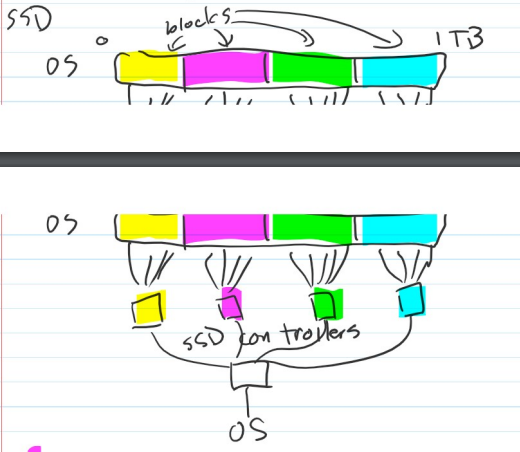 SSD
blocks
0 1TB
OS
OS
SSD controllers
OS